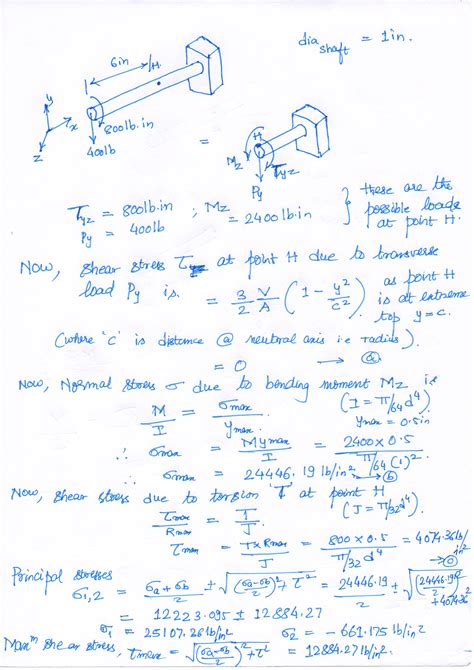 dia shaft = 1in.
6in
H
y
x
z
800lb.in
400lb
=
H
Mz
Tyz
Py
Tyz = 800lb.in ; Mz = 2400lb.in
Py = 400lb
} these are the possible loads at point H.
Now, shear stress τ at point H due to transverse
load Py is. = 3/2 V/A (1 - y²/c²) as point H is at extreme top y=c.
(where 'c' is distance @ neutral axis i.e radius).
= 0 → ⓐ
Now, Normal stress σ due to bending moment Mz is
M/I = σmax/ymax (I = π/64 d⁴)
ymax = 0.5in
∴ σmax = Mymax/I = 2400×0.5 / π/64 (1)²
σmax = 24446.19 lb/in² → ⓑ
Now, shear stress due to torsion T at point H
τmax/Rmax = T/J (J = π/32 d⁴)
τmax = T×Rmax/J = 800×0.5 / π/32 d⁴ = 4074.36lb/in² → ⓒ
Principal stresses
σ1,2 = σa+σb/2 ± √((σa-σb/2)² + τ²) = 24446.19/2 ± √((24446.19/2)² + 4074.36²)
= 12223.095 ± 12884.27
σ1 = 25107.26lb/in² σ2 = -661.175 lb/in²
Maxᵐ shear stress, τmax = √((σa-σb/2)² + τ²) = 12884.27lb/in²